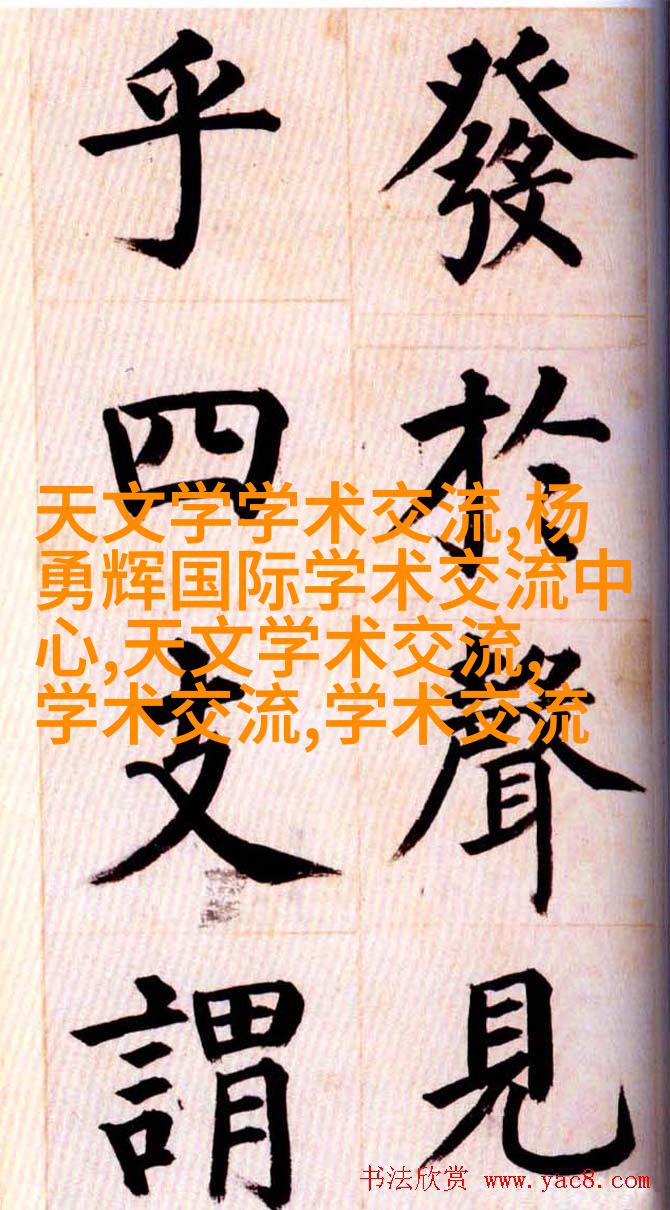 發於聲見
乎四支謂
天文学学术交流,杨
勇辉国际学术交流中
心,天文学术交流,
学术交流,学术交流
书法欣赏 www.yac8.com